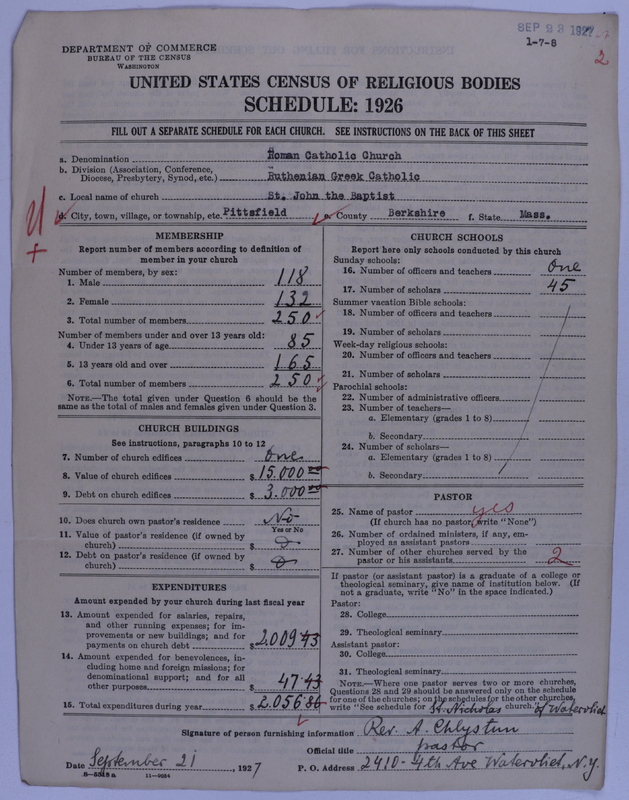 SEP 23 1927
1-7-8
2
DEPARTMENT OF COMMERCE
BUREAU OF THE CENSUS
WASHINGTON
UNITED STATES CENSUS OF RELIGIOUS BODIES
SCHEDULE: 1926
FILL OUT A SEPARATE SCHEDULE FOR EACH CHURCH. SEE INSTRUCTIONS ON THE BACK OF THIS SHEET
a. Denomination Roman Catholic Church
b. Division (Association, Conference, Diocese, Presbytery, Synod, etc.) Ruthenian Greek Catholic
c. Local name of church St. John the Baptist
d. City, town, village, or township, etc. Pittsfield e. County Berkshire f. State Mass.
MEMBERSHIP
Report number of members according to definition of
member in your church
Number of members, by sex:
1. Male 118
2. Female 132
3. Total number of members 250
Number of members under and over 13 years old:
4. Under 13 years of age 85
5. 13 years old and over 165
6. Total number of members 250
NOTE.—The total given under Question 6 should be the
same as the total of males and females given under Question 3.
CHURCH BUILDINGS
See instructions, paragraphs 10 to 12
7. Number of church edifices One
8. Value of church edifices $ 15.000 00
9. Debt on church edifices $ 3.000 00
10. Does church own pastor's residence No
Yes or No
11. Value of pastor's residence (if owned by
church) $ 0
12. Debt on pastor's residence (if owned by
church) $ 0
EXPENDITURES
Amount expended by your church during last fiscal year
13. Amount expended for salaries, repairs,
and other running expenses; for im-
provements or new buildings; and for
payments on church debt $ 2009 43
14. Amount expended for benevolences, in-
cluding home and foreign missions; for
denominational support; and for all
other purposes $ 47.43
15. Total expenditures during year $ 2.056 86
CHURCH SCHOOLS
Report here only schools conducted by this church
Sunday schools:
16. Number of officers and teachers One
17. Number of scholars 45
Summer vacation Bible schools:
18. Number of officers and teachers
19. Number of scholars
Week-day religious schools:
20. Number of officers and teachers
21. Number of scholars
Parochial schools:
22. Number of administrative officers
23. Number of teachers—
a. Elementary (grades 1 to 8)
b. Secondary
24. Number of scholars—
a. Elementary (grades 1 to 8)
b. Secondary
PASTOR
25. Name of pastor yes
(If church has no pastor, write "None")
26. Number of ordained ministers, if any, em-
ployed as assistant pastors
27. Number of other churches served by the
pastor or his assistants 2
If pastor (or assistant pastor) is a graduate of a college or
theological seminary, give name of institution below. (If
not a graduate, write "No" in the space indicated.)
Pastor:
28. College
29. Theological seminary
Assistant pastor:
30. College
31. Theological seminary
NOTE.—Where one pastor serves two or more churches,
Questions 28 and 29 should be answered only on the schedule
for one of the churches; on the schedules for the other churches,
write "See schedule for St. Nicholas church." of Watervliet
Signature of person furnishing information Rev. A. Chlystun
Official title pastor
Date September 21, 1927 P. O. Address 2410-4th Ave Watervliet, N.Y.
8-5518 a 11-9684